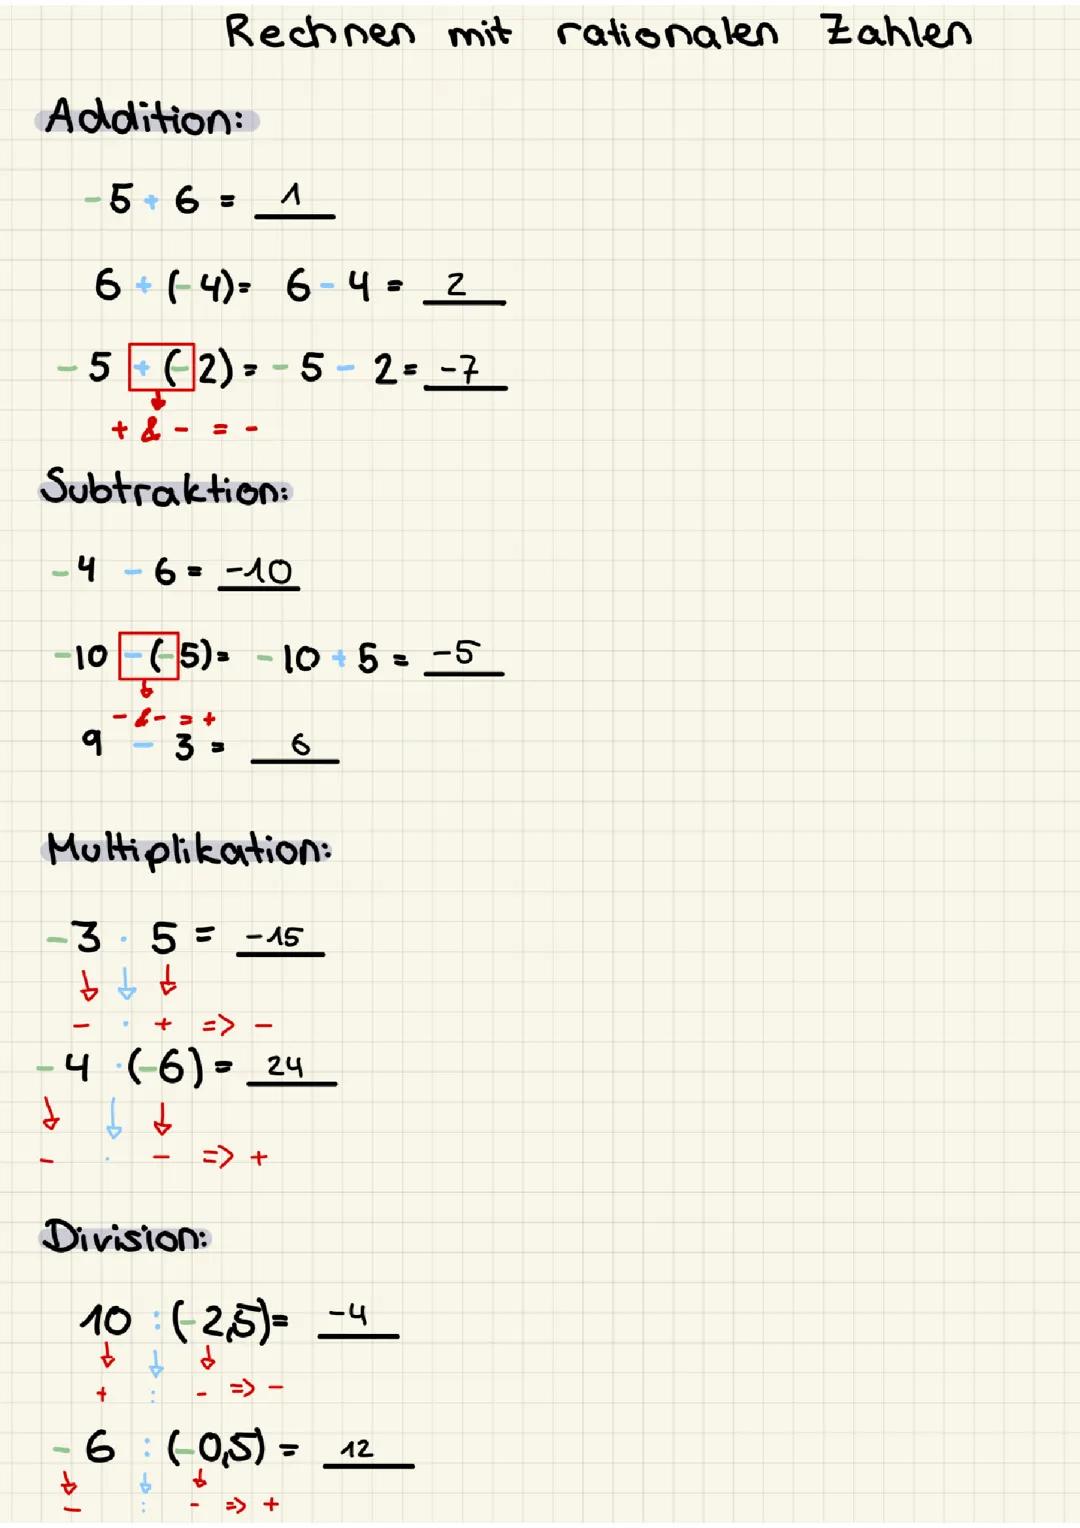 Rechnen mit rationalen Zahlen
Addition:
-5 + 6 = 1
6 + (-4) = 6 - 4 = 2
-5 + (-2) = -5 - 2 = -7
+ & - = -
Subtraktion:
-4 - 6 = -10
-10 - (-5) = -10 + 5 = -5
- & - = +
9 - 3 = 6
Multiplikation:
-3 · 5 = -15
- · + => -
-4 · (-6) = 24
- · - => +
Division:
10 : (-2,5) = -4
+ : - => -
-6 : (-0,5) = 12
- : - => +